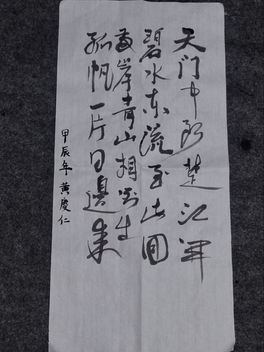 天门中断楚江开
碧水东流至此回
两岸青山相对出
孤帆一片日邊来
甲辰年 黄慶仁